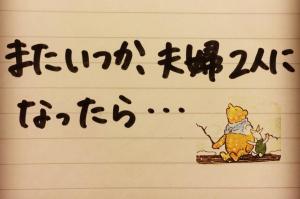 またいつか、夫婦2人に
なったら・・・